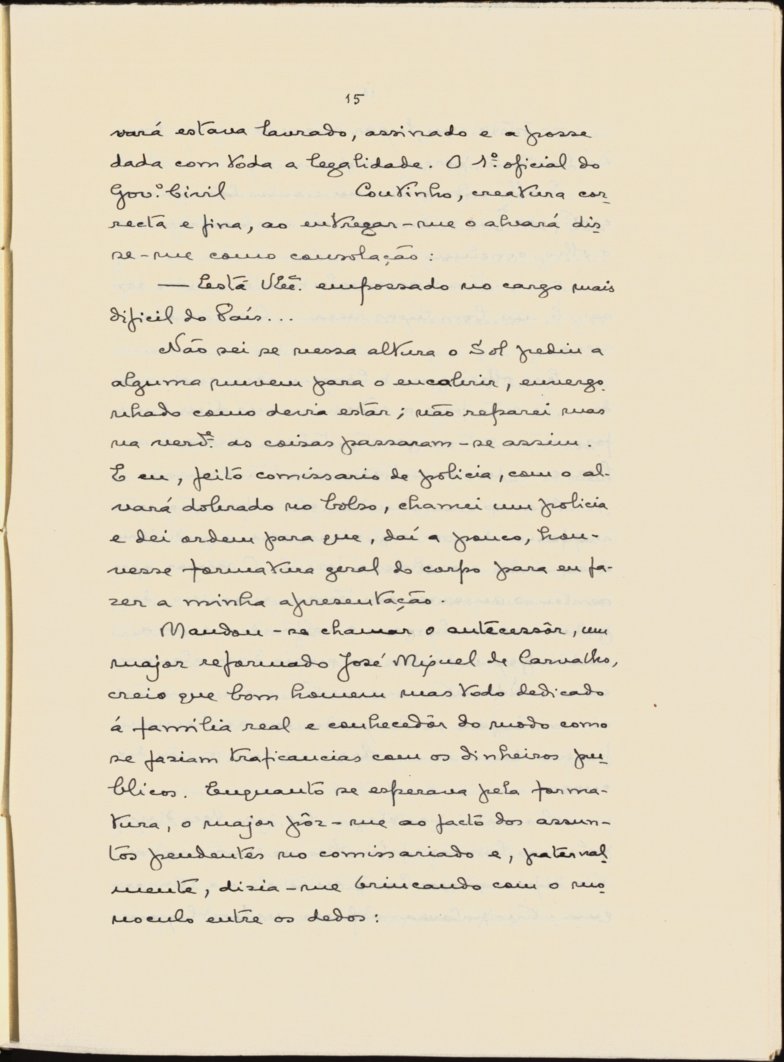 15
vará estava lavrado, assinado e a posse
dada com toda a legalidade. O 1º. oficial do
Govº. Civil Coutinho, creatura cor-
recta e fina, ao entregar-me o alvará dis-
se-me como consolação:
— Está VEcª. empossado no cargo mais
dificil do País...
Não sei se nessa altura o Sol pediu a
alguma nuvem para o encobrir, envergo-
nhado como devia estar; não reparei mas
na verdᵉ. as coisas passaram-se assim.
E eu, feito comissario de policia, com o al-
vará dobrado no bolso, chamei um policia
e dei ordem para que, daí a pouco, hou-
vesse formatura geral do corpo para eu fa-
zer a minha apresentação.
Mandou-se chamar o antecessôr, um
major reformado José Miguel de Carvalho,
creio que bom homem mas todo dedicado
á família real e conhecedôr do modo como
se faziam traficancias com os dinheiros pu-
blicos. Enquanto se esperava pela forma-
tura, o major pôz-me ao facto dos assun-
tos pendentes no comissariado e, paternal-
mente, dizia-me brincando com o mo-
noculo entre os dedos: